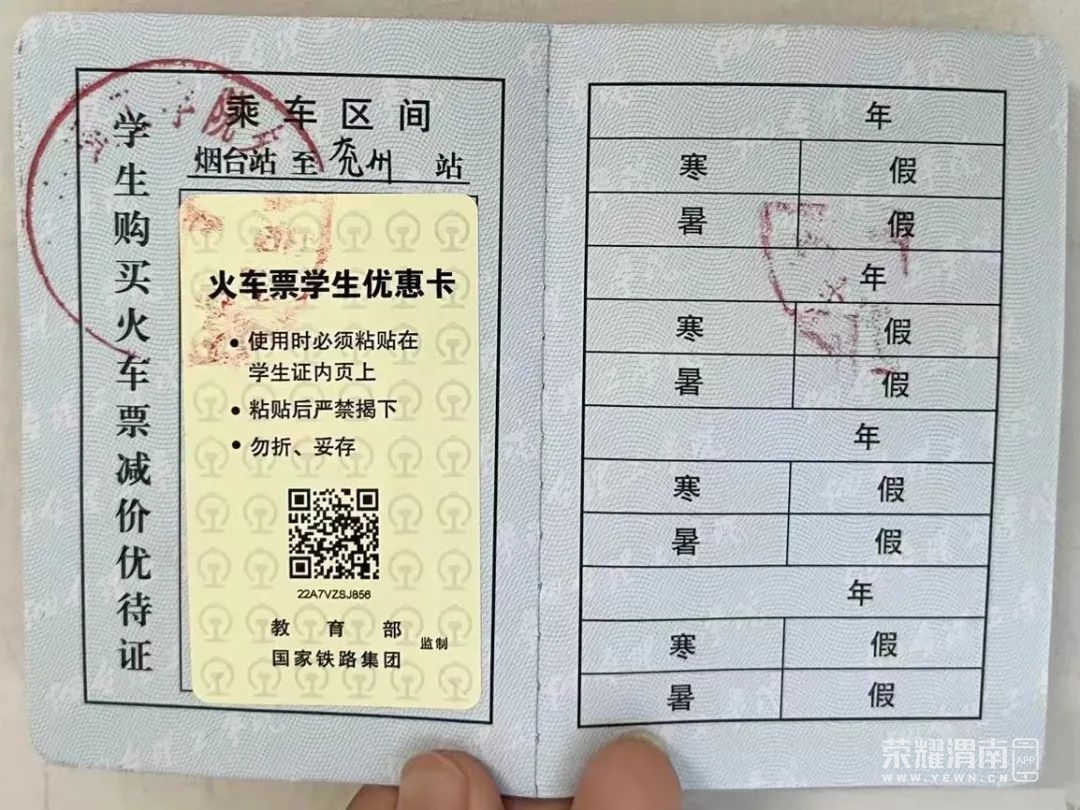 学生购买火车票减价优待证
乘车区间
烟台站 至 兖州 站
火车票学生优惠卡
• 使用时必须粘贴在
学生证内页上
• 粘贴后严禁揭下
• 勿折、妥存
22A7VZSJ856
教育部
国家铁路集团
监制
年
寒 假
暑 假
年
寒 假
暑 假
年
寒 假
暑 假
年
寒 假
暑 假
荣耀渭南 APP
WWW.YEWN.CN